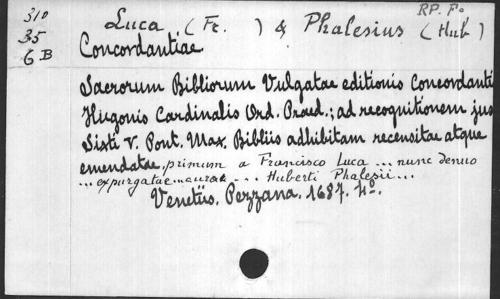 310
35
6B
RP. Fo
Luca (Fr. ) & Phalesius (Hub)
Concordantiae
Sacrorum Bibliorum Vulgatae editionis Concordanti
Hugonis Cardinalis Ord. Praed.; ad recognitionem jus
Sixti V. Pont. Max. Bibliis adhibitam recensitae atque
emendatae, primum a Francisco Luca ... nunc denuo
... expurgatae ... curae ... Huberti Phalesii ...
Venetiis. Pezzana. 1687. 4o.